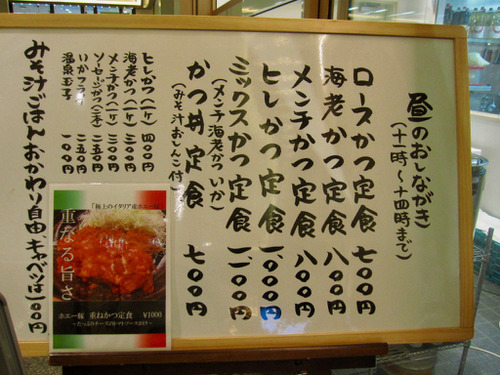 昼のおしながき
(十一時〜十四時まで)
ロースかつ定食 七〇〇円
海老かつ定食 八〇〇円
メンチかつ定食 八〇〇円
ヒレかつ定食 一、〇〇〇円
ミックスかつ定食 一、一〇〇円
(メンチ 海老かつ いか)
かつ丼定食 七〇〇円
(みそ汁おしんこ付)
ヒレかつ(一ヶ) 四〇〇円
海老かつ(一ヶ) 三〇〇円
メンチかつ(一ヶ) 三〇〇円
ソーセージかつ(二本) 二五〇円
いかフライ 二五〇円
温泉玉子 一〇〇円
みそ汁ごはんおかわり自由 キャベツは一〇〇円
「極上のイタリア産ホエー豚」
重なる旨さ
ホエー豚 重ねかつ定食 ¥1000
〜たっぷりチーズのトマトソースがけ〜